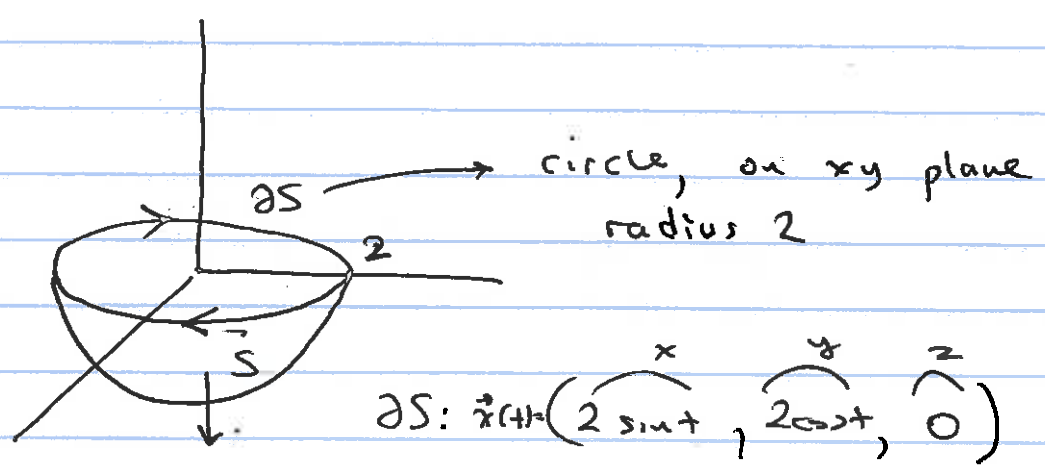 circle, on xy plane
∂S
radius 2
2
S
x y z
∂S: x⃗(t)=(2 sint, 2cost, 0)